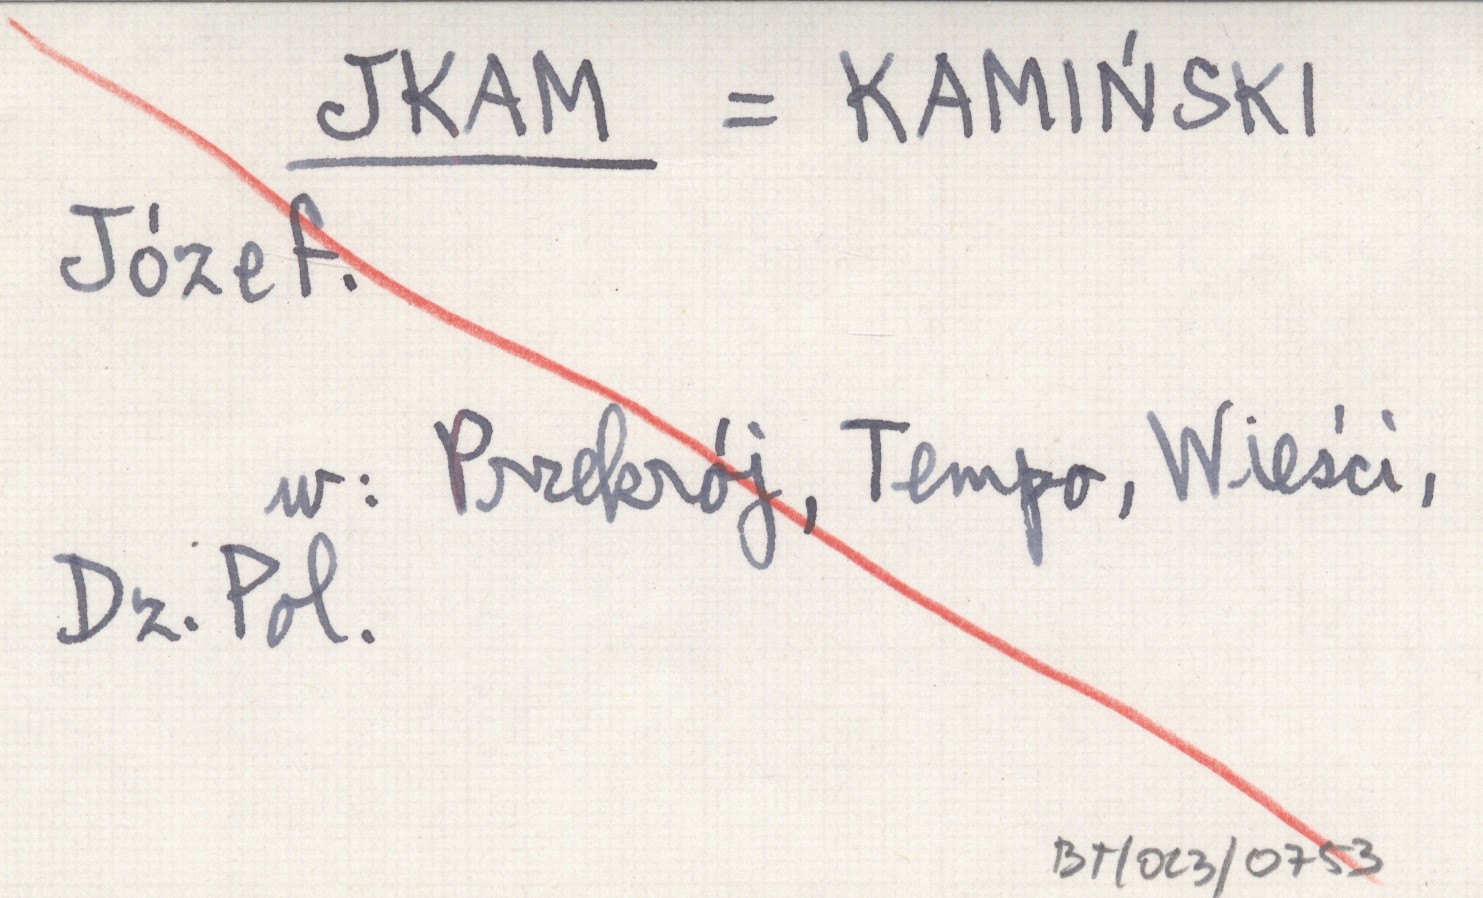 JKAM = KAMIŃSKI
Józef.
w: Przekrój, Tempo, Wieści,
Dz. Pol.
BT/013/0753